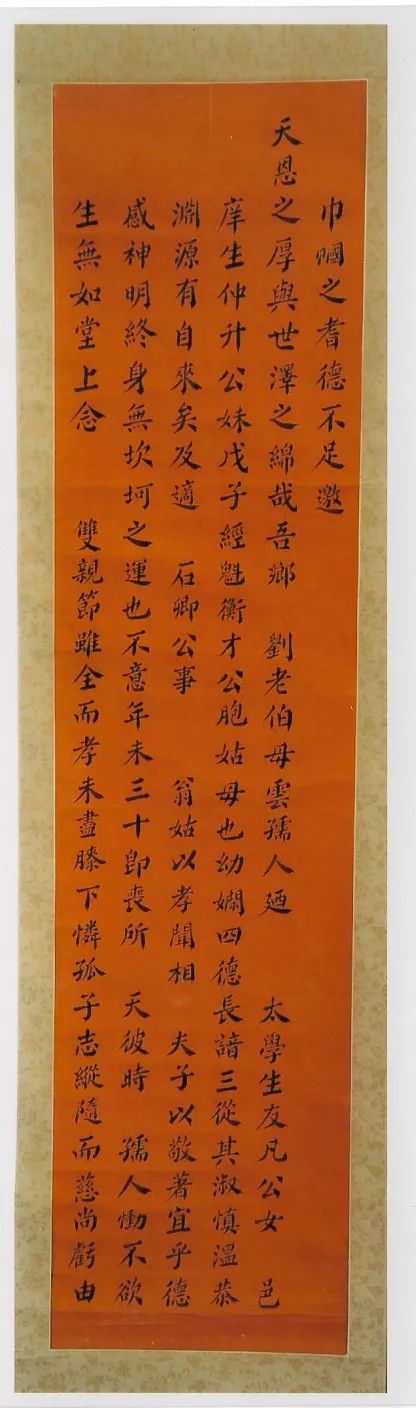 巾幗之耆德不足邀
天恩之厚與世澤之綿哉吾鄉 劉老伯母雲孺人廼 太學生友凡公女 邑
庠生仲升公妹戊子經魁衡才公胞姑母也幼嫻四德長諳三從其淑慎溫恭
淵源有自來矣及適 石卿公事 翁姑以孝聞相 夫子以敬著宜乎德
感神明終身無坎坷之運也不意年未三十即喪所 天彼時 孺人慟不欲
生無如堂上念 雙親節雖全而孝未盡膝下憐孤子志縱隨而慈尚虧由